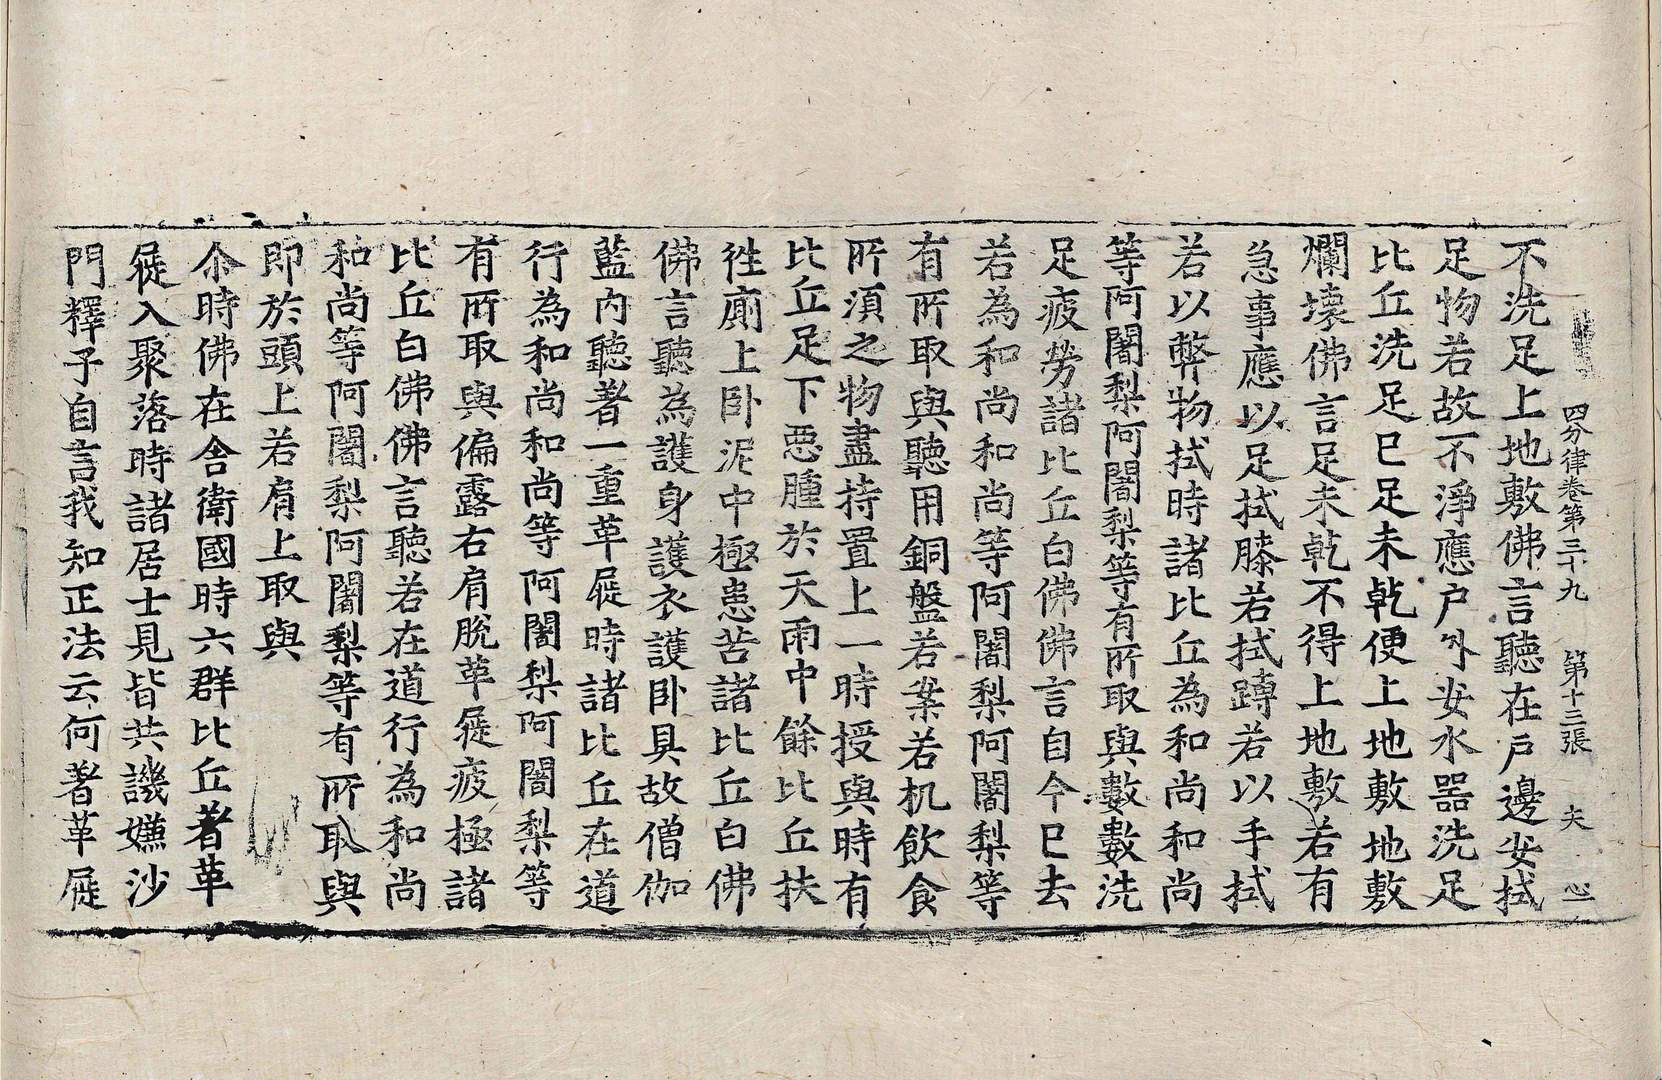 四分律卷第三十九 第十三張 夫
不洗足上地敷佛言聽在戶邊安拭
足物若故不淨應戶外安水器洗足
比丘洗足已足未乾便上地敷地敷
爛壞佛言足未乾不得上地敷若有
急事應以足拭膝若拭蹲若以手拭
若以弊物拭時諸比丘為和尚和尚
等阿闍梨阿闍梨等有所取與數數洗
足疲勞諸比丘白佛佛言自今已去
若為和尚和尚等阿闍梨阿闍梨等
有所取與聽用銅盤若案若机飲食
所須之物盡持置上一時授與時有
比丘足下惡腫於天雨中餘比丘扶
往廁上卧泥中極患苦諸比丘白佛
佛言聽為護身護衣護卧具故僧伽
藍內聽著一重革屣時諸比丘在道
行為和尚和尚等阿闍梨阿闍梨等
有所取與偏露右肩脫革屣疲極諸
比丘白佛佛言聽若在道行為和尚
和尚等阿闍梨阿闍梨等有所取與
即於頭上若肩上取與
尒時佛在舍衛國時六群比丘著革
屣入聚落時諸居士見皆共譏嫌沙
門釋子自言我知正法云何著革屣